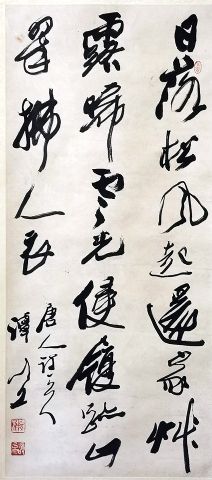 日落松風起還家艸
露晞雲光侵履跡山
翠拂人衣
唐人詩